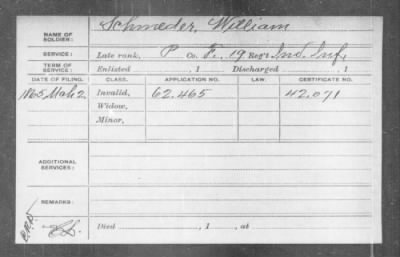 NAME OF SOLDIER: Schmeder, William
SERVICE: Late rank, P Co. F., 19 Reg't Ind. Inf.
TERM OF SERVICE: Enlisted , 1 Discharged , 1
DATE OF FILING. CLASS. APPLICATION NO. LAW. CERTIFICATE NO.
1865 Mch 2 Invalid, 62.465 42.071
Widow,
Minor,
ADDITIONAL SERVICES:
REMARKS:
Died , 1 , at